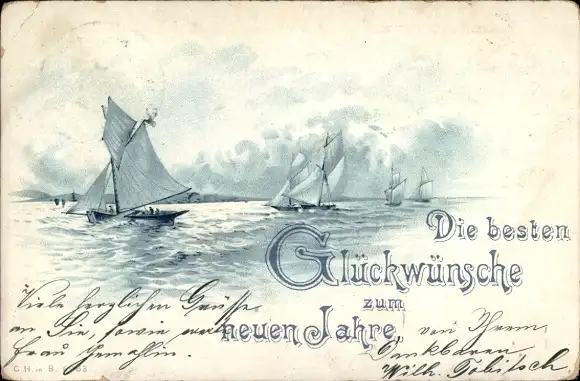 Die besten
Glückwünsche
zum
neuen Jahre
Viele herzlichen Grüsse
an Sie, sowie
Frau Gemahlin.
von Ihrem
Dankbaren
Wilh. Tobitsch
C.H. in B.